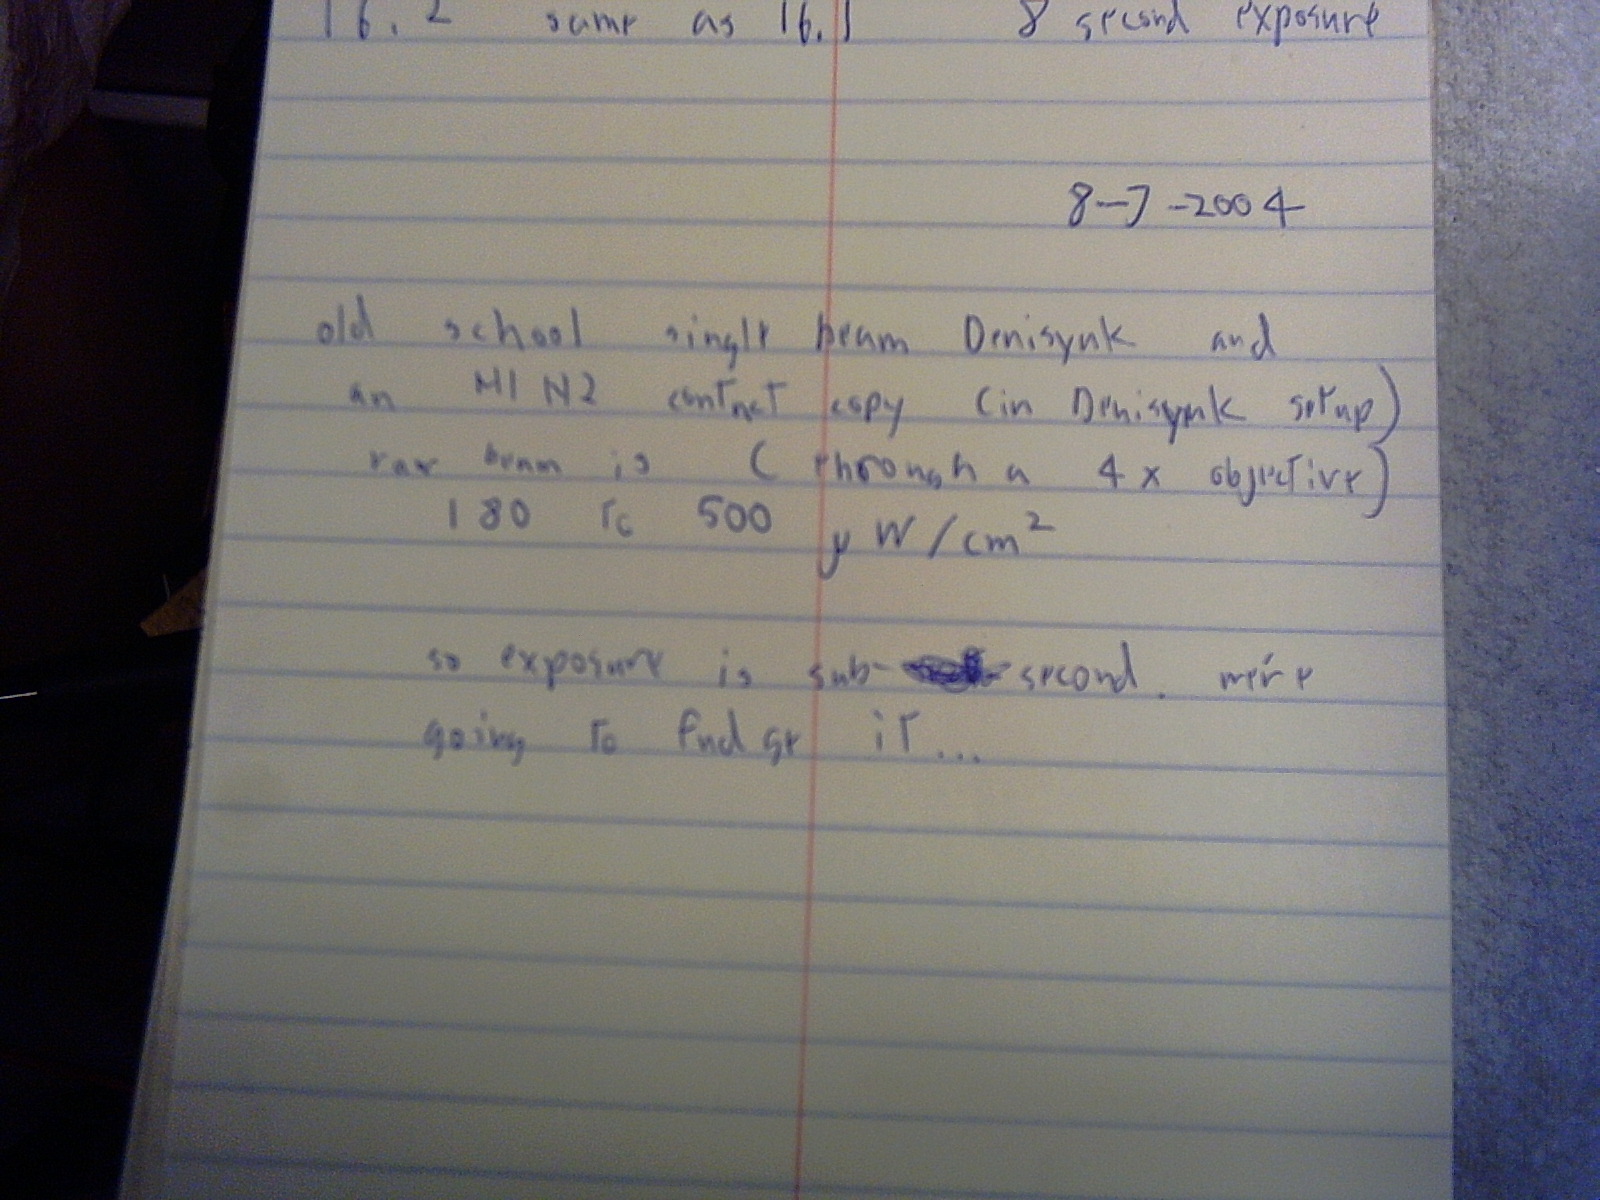 16.2 same as 16.1 8 second exposure
8-7-2004
old school single beam Denisynk and
an H1 H2 contact copy (in Denisynk setup)
raw beam is (through a 4x objective)
180 to 500 μW/cm²
so exposure is sub- second. we're
going to fudge it...